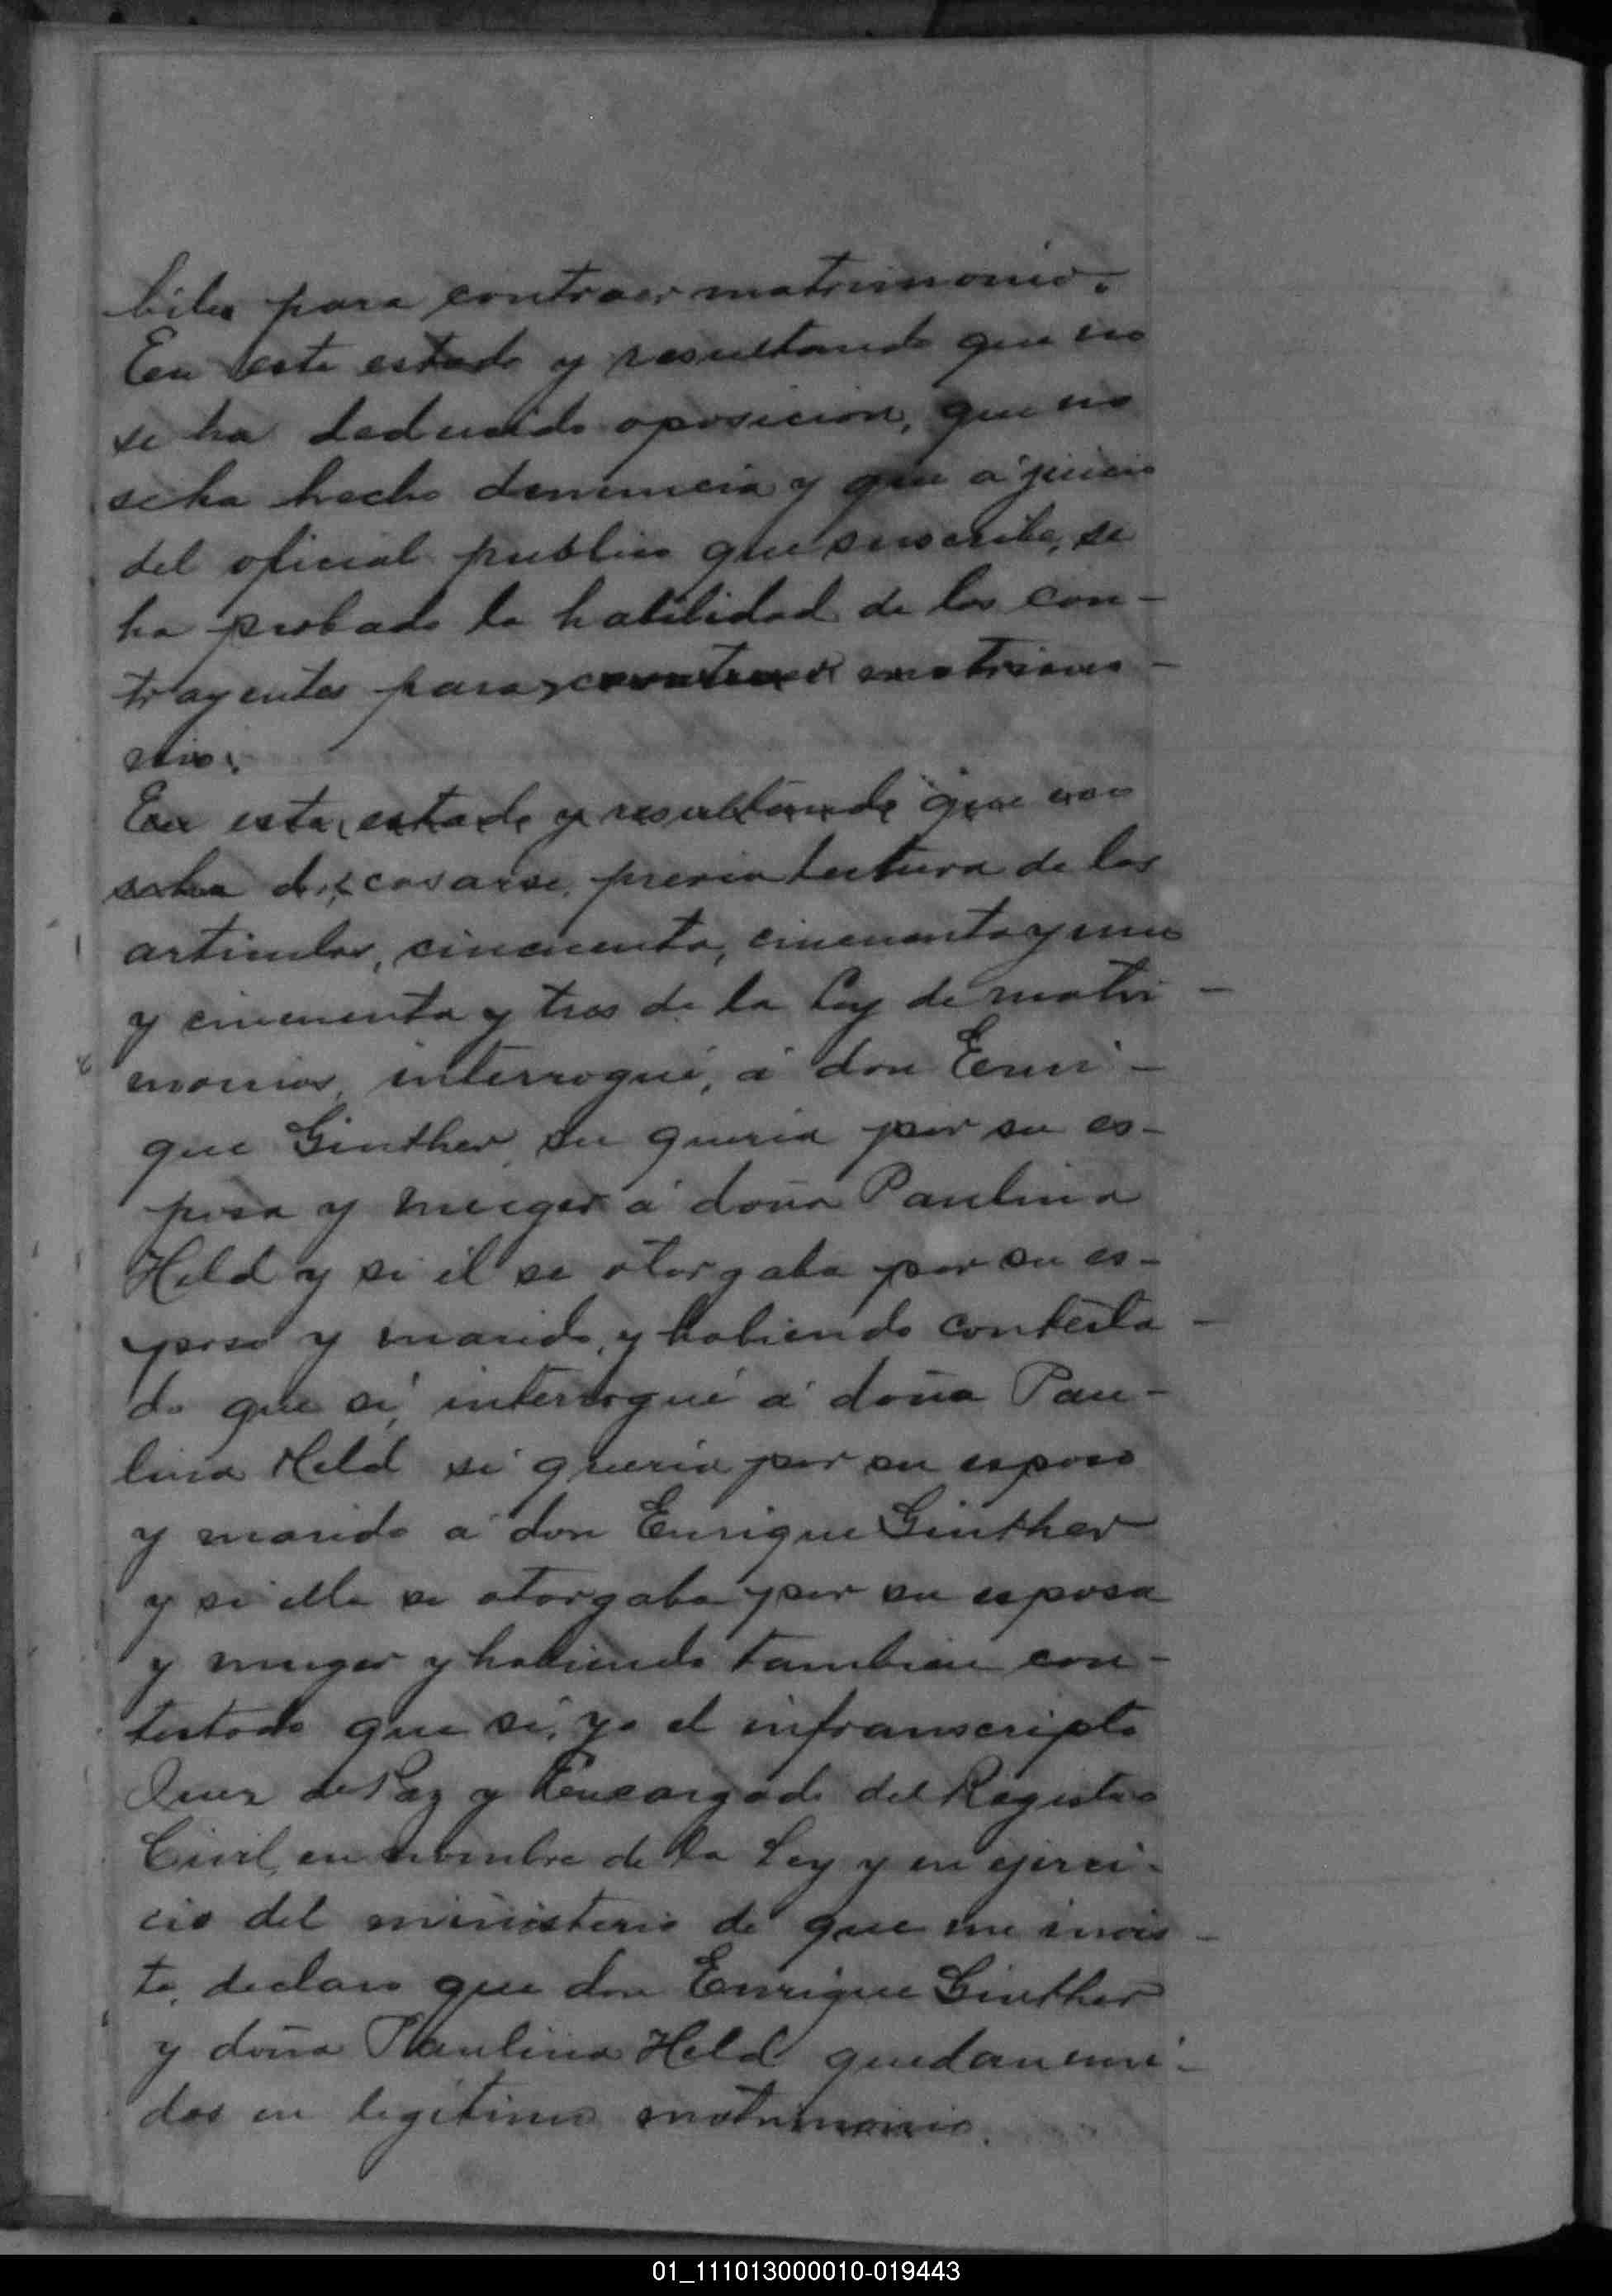 biles para contraer matrimonio.
En este estado y resultando que no
se ha deducido oposicion, que no
se ha hecho denuncia y que á juicio
del oficial publico que suscribe, se
ha probado la habilidad de los con-
trayentes para contraer matrimo-
nio.
En este estado y resultando que no
se ha de casarse, previa lectura de los
articulos, cincuenta, cincuenta y uno
y cincuenta y tres de la Ley de matri-
monios, interrogué, á don Enri-
que Ginther, su queria por su es-
posa y muger á doña Paulina
Held y si él se otorgaba por su es-
poso y marido, y habiendo contesta-
do que sí, interrogué á doña Pau-
lina Held si queria por su esposo
y marido á don Enrique Ginther
y si ella se otorgaba por su esposa
y muger y habiendo tambien con-
testado que sí, yo el infranscripto
Juez de Paz y Encargado del Registro
Civil, en nombre de la Ley y en ejerci-
cio del ministerio de que me invis-
to, declaro que don Enrique Ginther
y doña Paulina Held quedan uni-
dos en legitimo matrimonio.
01_111013000010-019443